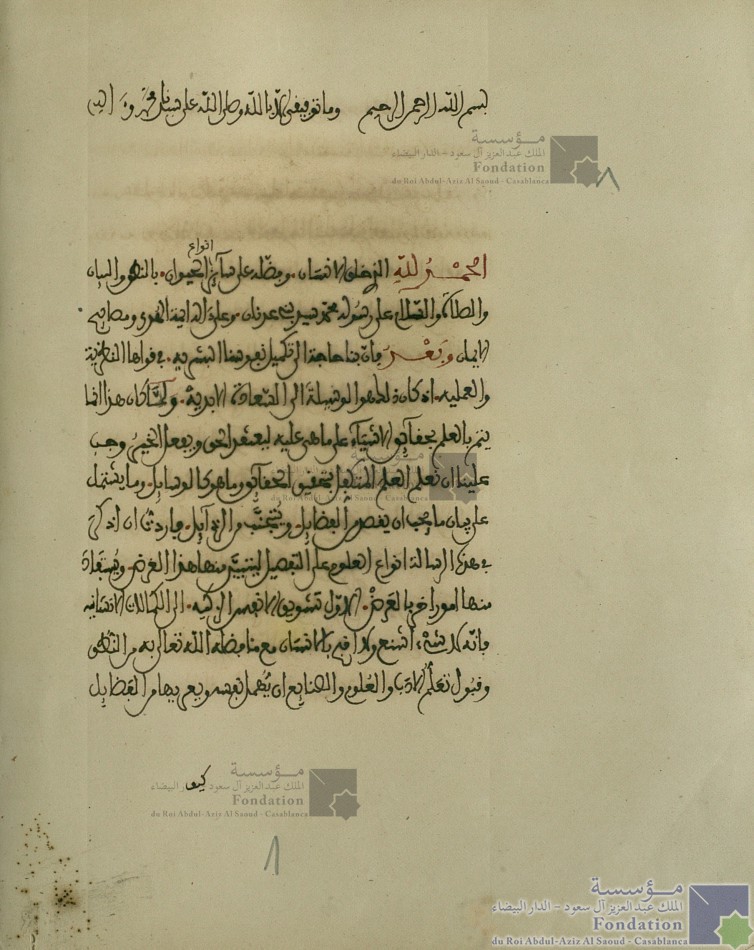 بسم الله الرحمن الرحيم وما توفيقي إلا بالله وصلى الله على سيدنا محمد وآله
مؤسسة
الملك عبد العزيز آل سعود - الدار البيضاء
Fondation
du Roi Abdul-Aziz Al Saoud - Casablanca
الحمد لله الذي خلق الانسان. وفضله على سائر انواع الحيوان. بالنطق والبيان
والصلاة والسلام على رسوله محمد سيد بني عدنان. وعلى آله ايمة الهدى ومصابيح
الايمان وبعد فان بنا حاجة الى تكميل نفوسنا البشرية. في قواها النظرية
والعملية. اذ كان ذلك هو الوسيلة الى السعادة الابدية. ولما كان هذا انما
يتم بالعلم بحقائق الاشياء على ما هي عليه ليعتقد الحق ويفعل الخير وجب
علينا ان نعلم العلم المتكفل بتحقيق الحقائق وما هو كالوسايل. وما يشتمل
مؤسسة
du Roi Abdul-Aziz Al Saoud - Casablanca
على بيان ما يجب ان يقصد من الفضايل. ويتجنب من الرذايل. فاردت ان اذكر
في هذه الرسالة انواع العلوم على التفصيل ليتبين منها هذا الغرض ويستفاد
منها امور اخر بالعرض الاول تشويق الانفس الزكية. الى الكمالات الانسانية
فانه لا شيء اشنع ولا اقبح بالانسان مع ما فضله الله تعالى به من النطق
وقبول تعلم الآداب والعلوم والصنايع ان يهمل نفسه ويعريها من الفضايل
كيف
مؤسسة
الملك عبد العزيز آل سعود - الدار البيضاء
Fondation
du Roi Abdul-Aziz Al Saoud - Casablanca
مؤسسة
الملك عبد العزيز آل سعود - الدار البيضاء
Fondation
du Roi Abdul-Aziz Al Saoud - Casablanca